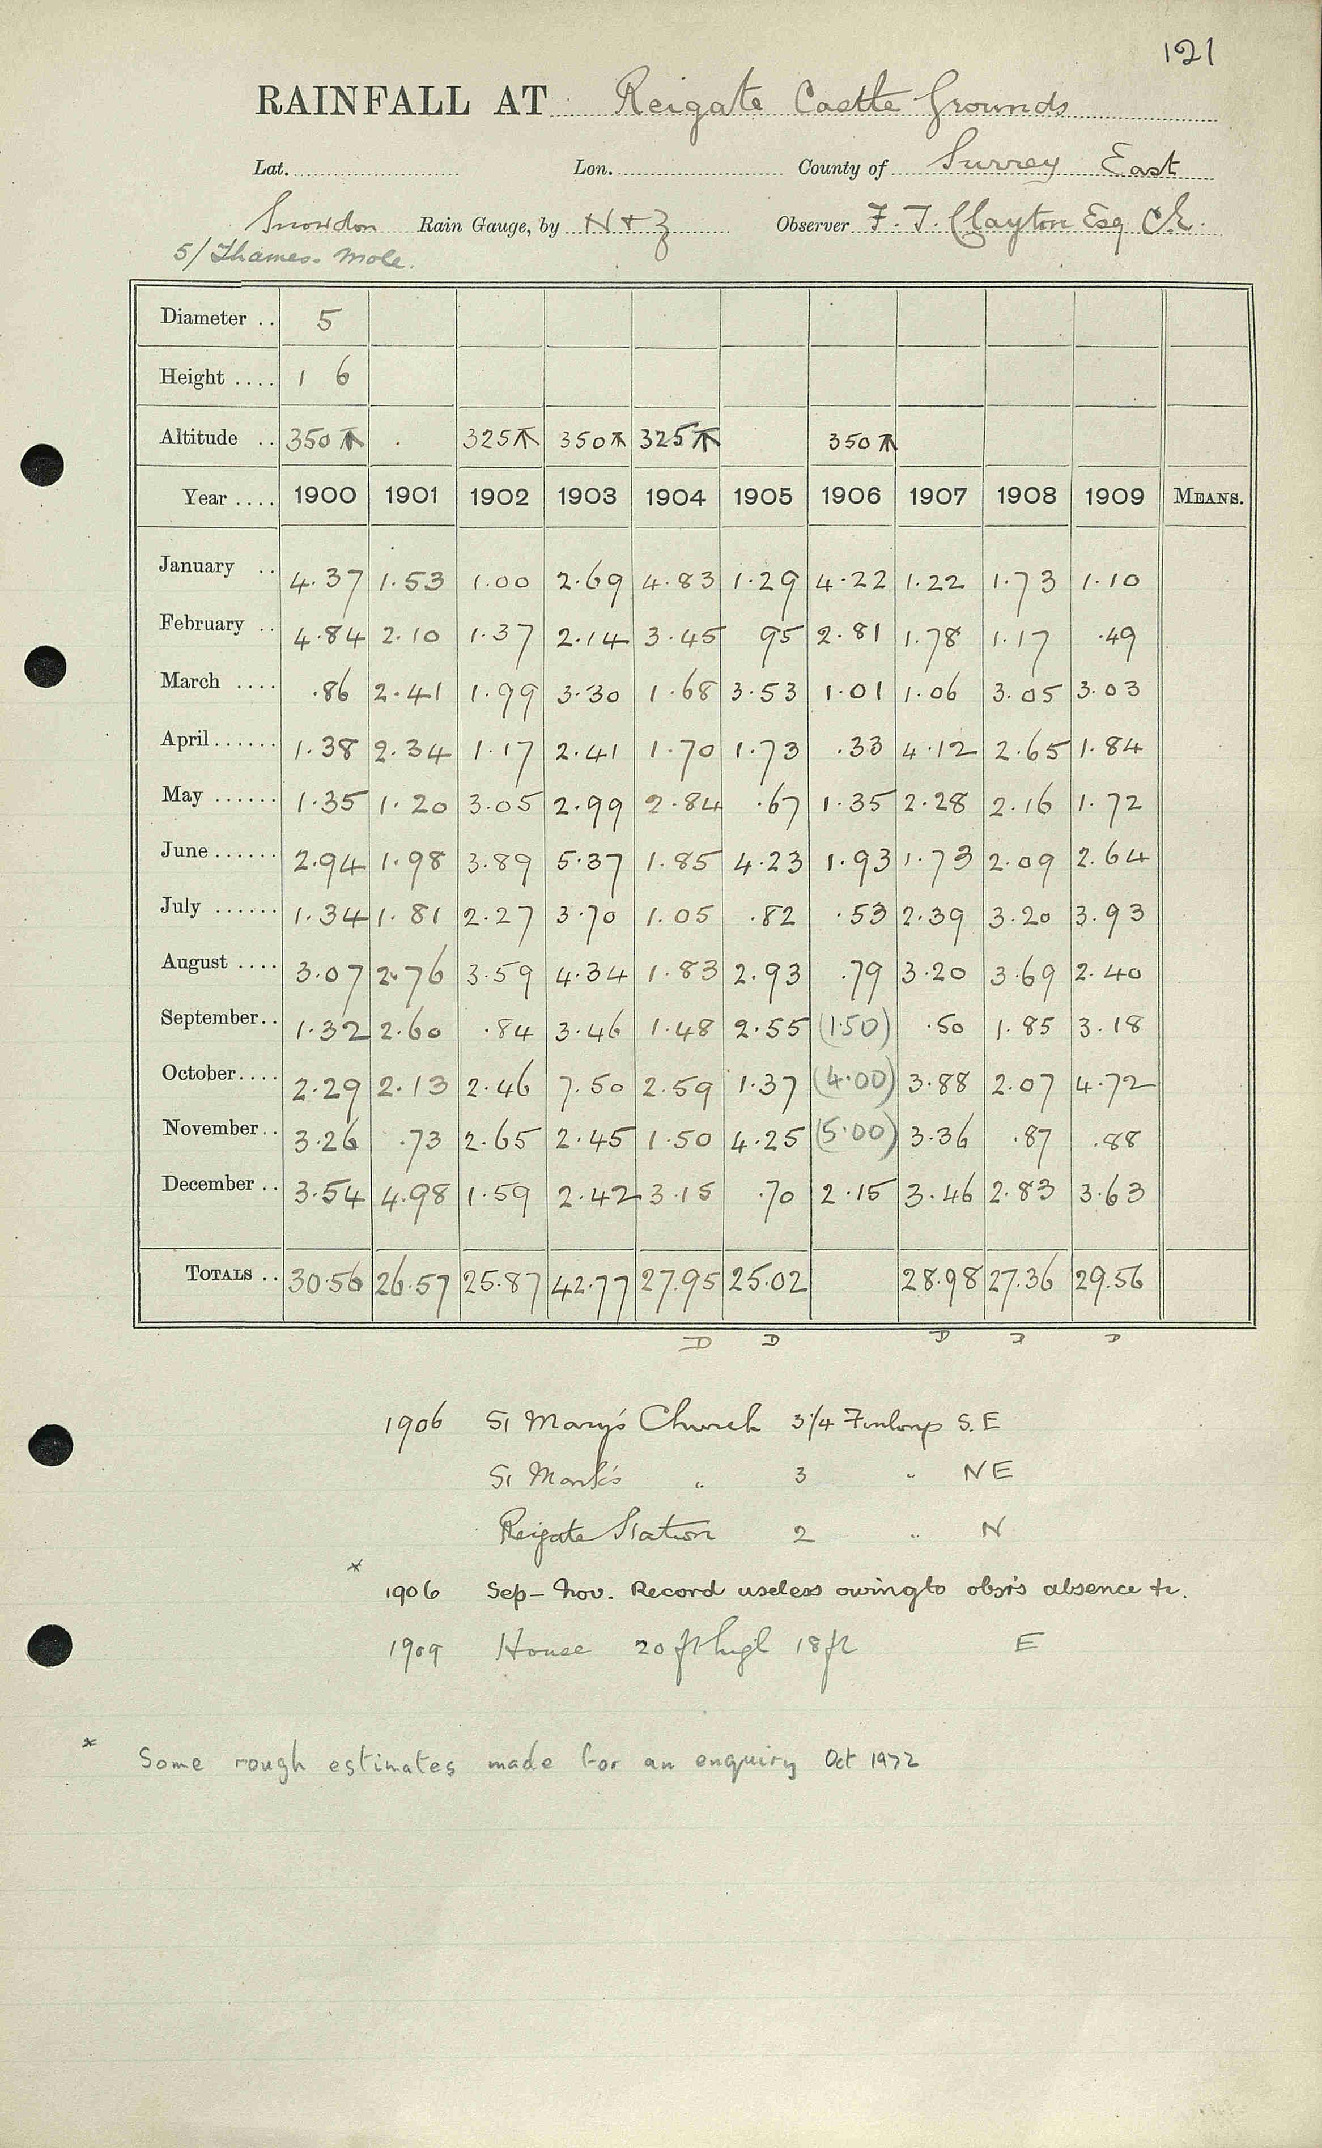 121
RAINFALL AT Reigate Castle Grounds
Lat. Lon. County of Surrey East
Snowdon Rain Gauge, by N + Z Observer F. T. Clayton Esq C.E.
5/ Thames. Mole.
Diameter .. 5
Height .... 1 6
Altitude .. 350 325 350 325 350
Year .... 1900 1901 1902 1903 1904 1905 1906 1907 1908 1909 MEANS.
January .. 4.37 1.53 1.00 2.69 4.83 1.29 4.22 1.22 1.73 1.10
February .. 4.84 2.10 1.37 2.14 3.45 95 2.81 1.78 1.17 .49
March .... .86 2.41 1.99 3.30 1.68 3.53 1.01 1.06 3.05 3.03
April...... 1.38 2.34 1.17 2.41 1.70 1.73 .33 4.12 2.65 1.84
May ...... 1.35 1.20 3.05 2.99 2.84 .67 1.35 2.28 2.16 1.72
June...... 2.94 1.98 3.89 5.37 1.85 4.23 1.93 1.73 2.09 2.64
July ...... 1.34 1.81 2.27 3.70 1.05 .82 .53 2.39 3.20 3.93
August .... 3.07 2.76 3.59 4.34 1.83 2.93 .79 3.20 3.69 2.40
September.. 1.32 2.60 .84 3.46 1.48 2.55 (1.50) .50 1.85 3.18
October.... 2.29 2.13 2.46 7.50 2.59 1.37 (4.00) 3.88 2.07 4.72
November.. 3.26 .73 2.65 2.45 1.50 4.25 (5.00) 3.36 .87 .88
December .. 3.54 4.98 1.59 2.42 3.15 .70 2.15 3.46 2.83 3.63
TOTALS .. 30.56 26.57 25.87 42.77 27.95 25.02 28.98 27.36 29.56
D D D D D
1906 St Mary's Church 3¼ Furlongs S.E
St Mark's " 3 " NE
Reigate Station 2 " N
* 1906 Sep - Nov. Record useless owing to obsr's absence &c.
1909 House 20 ft high 18 ft E
* Some rough estimates made for an enquiry Oct 1972